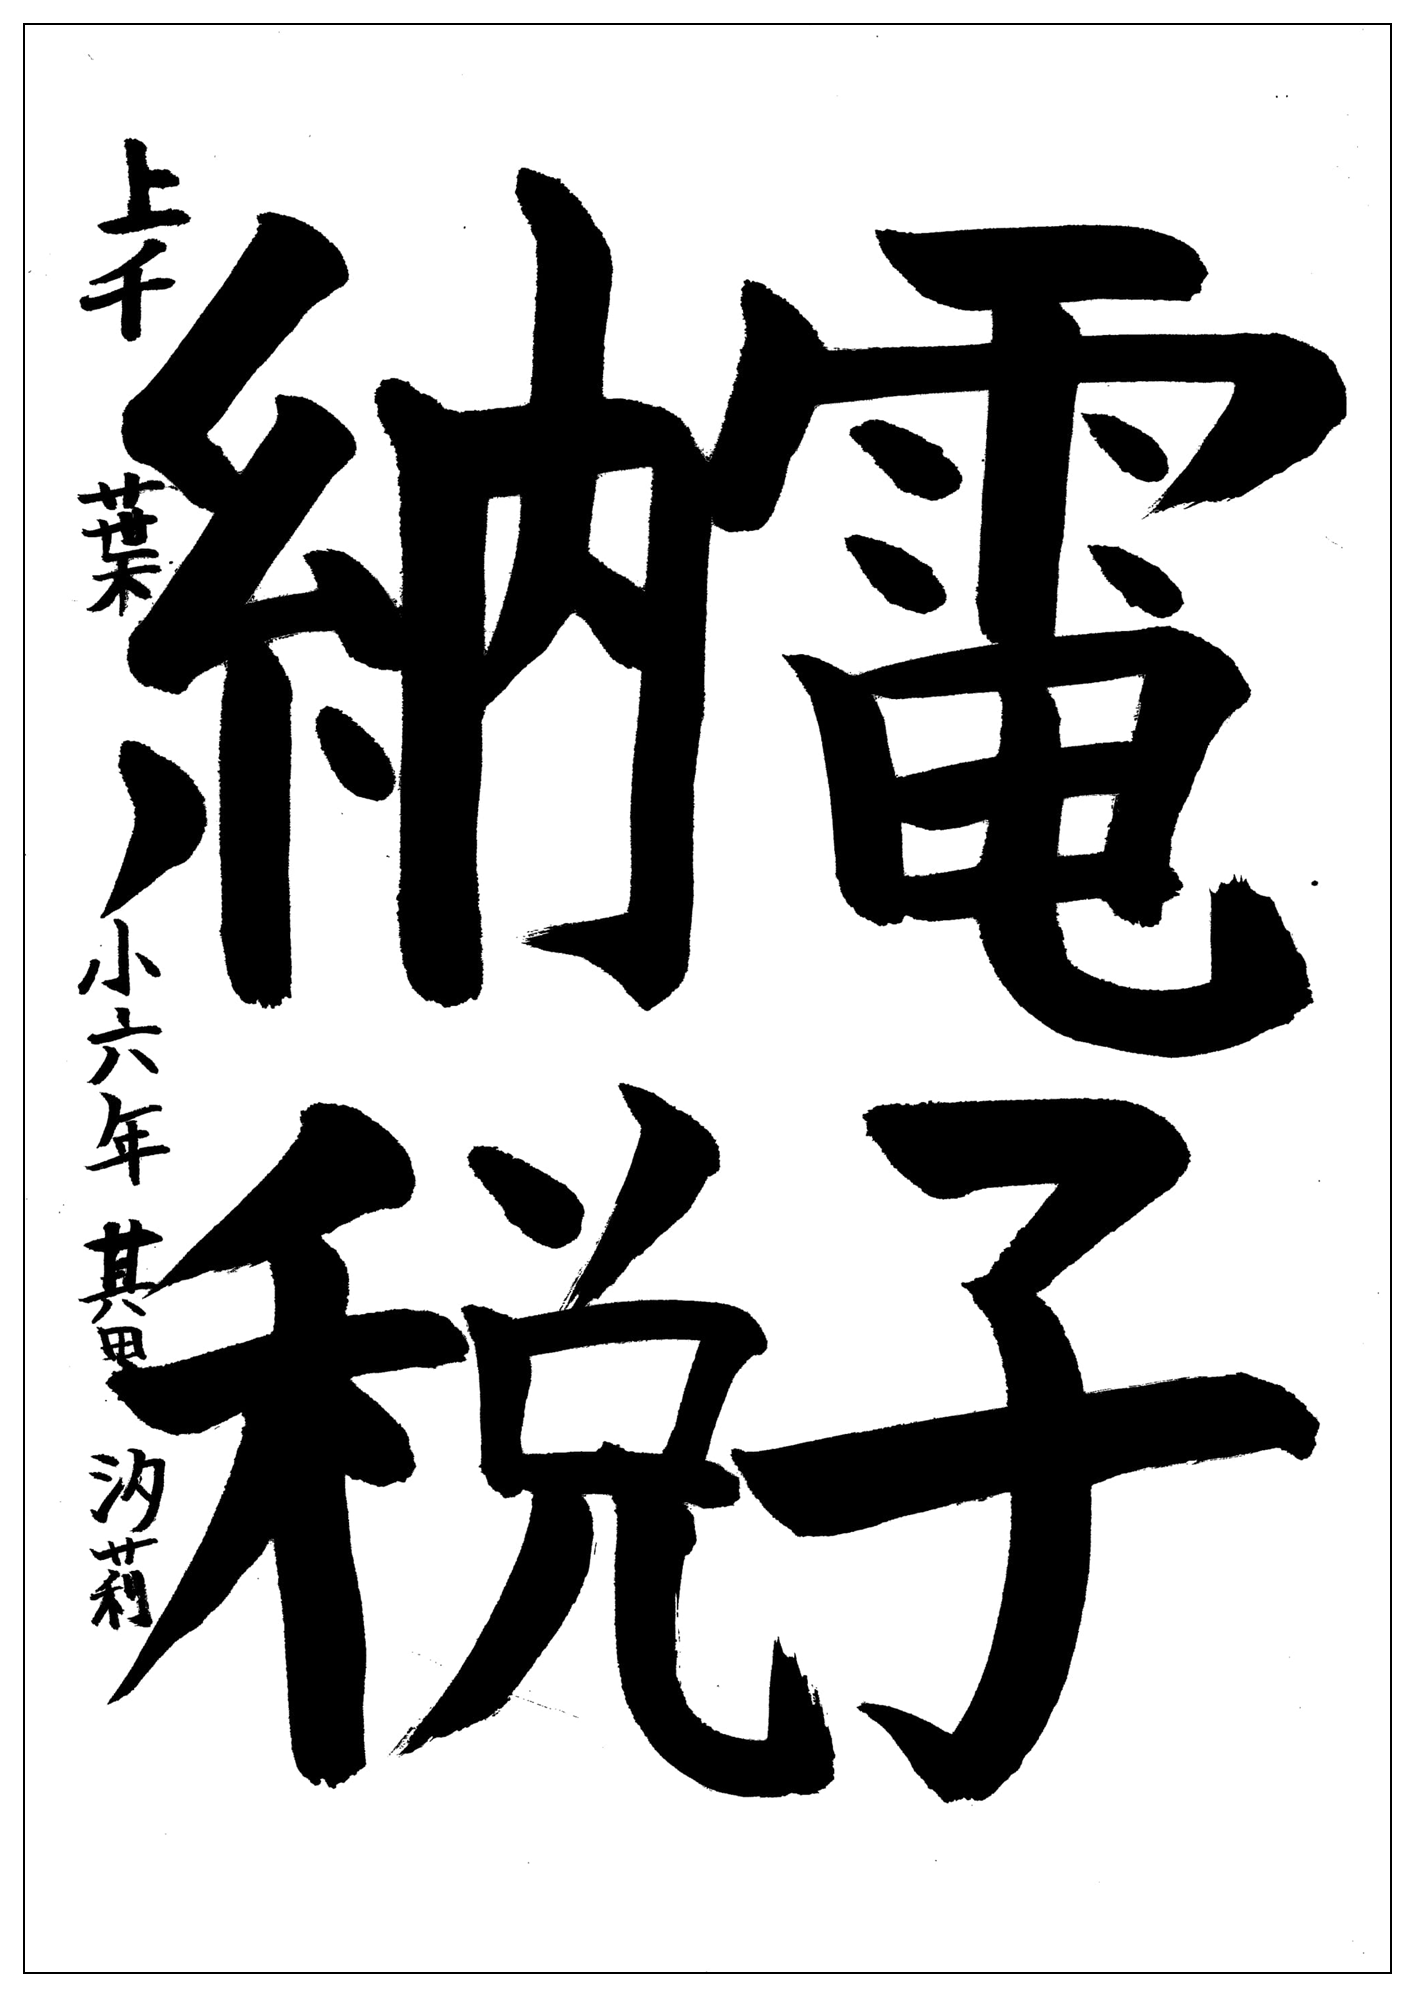 電子
納税
上千葉小六年 其田 汐莉